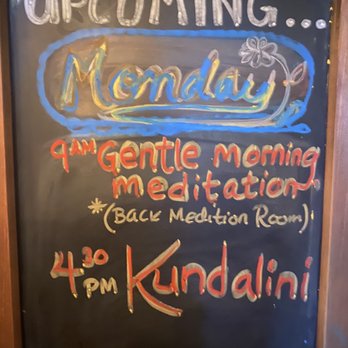 UPCOMING...
Monday
9AM Gentle morning
meditation
*(BACK Medition Room)
4 30 PM Kundalini